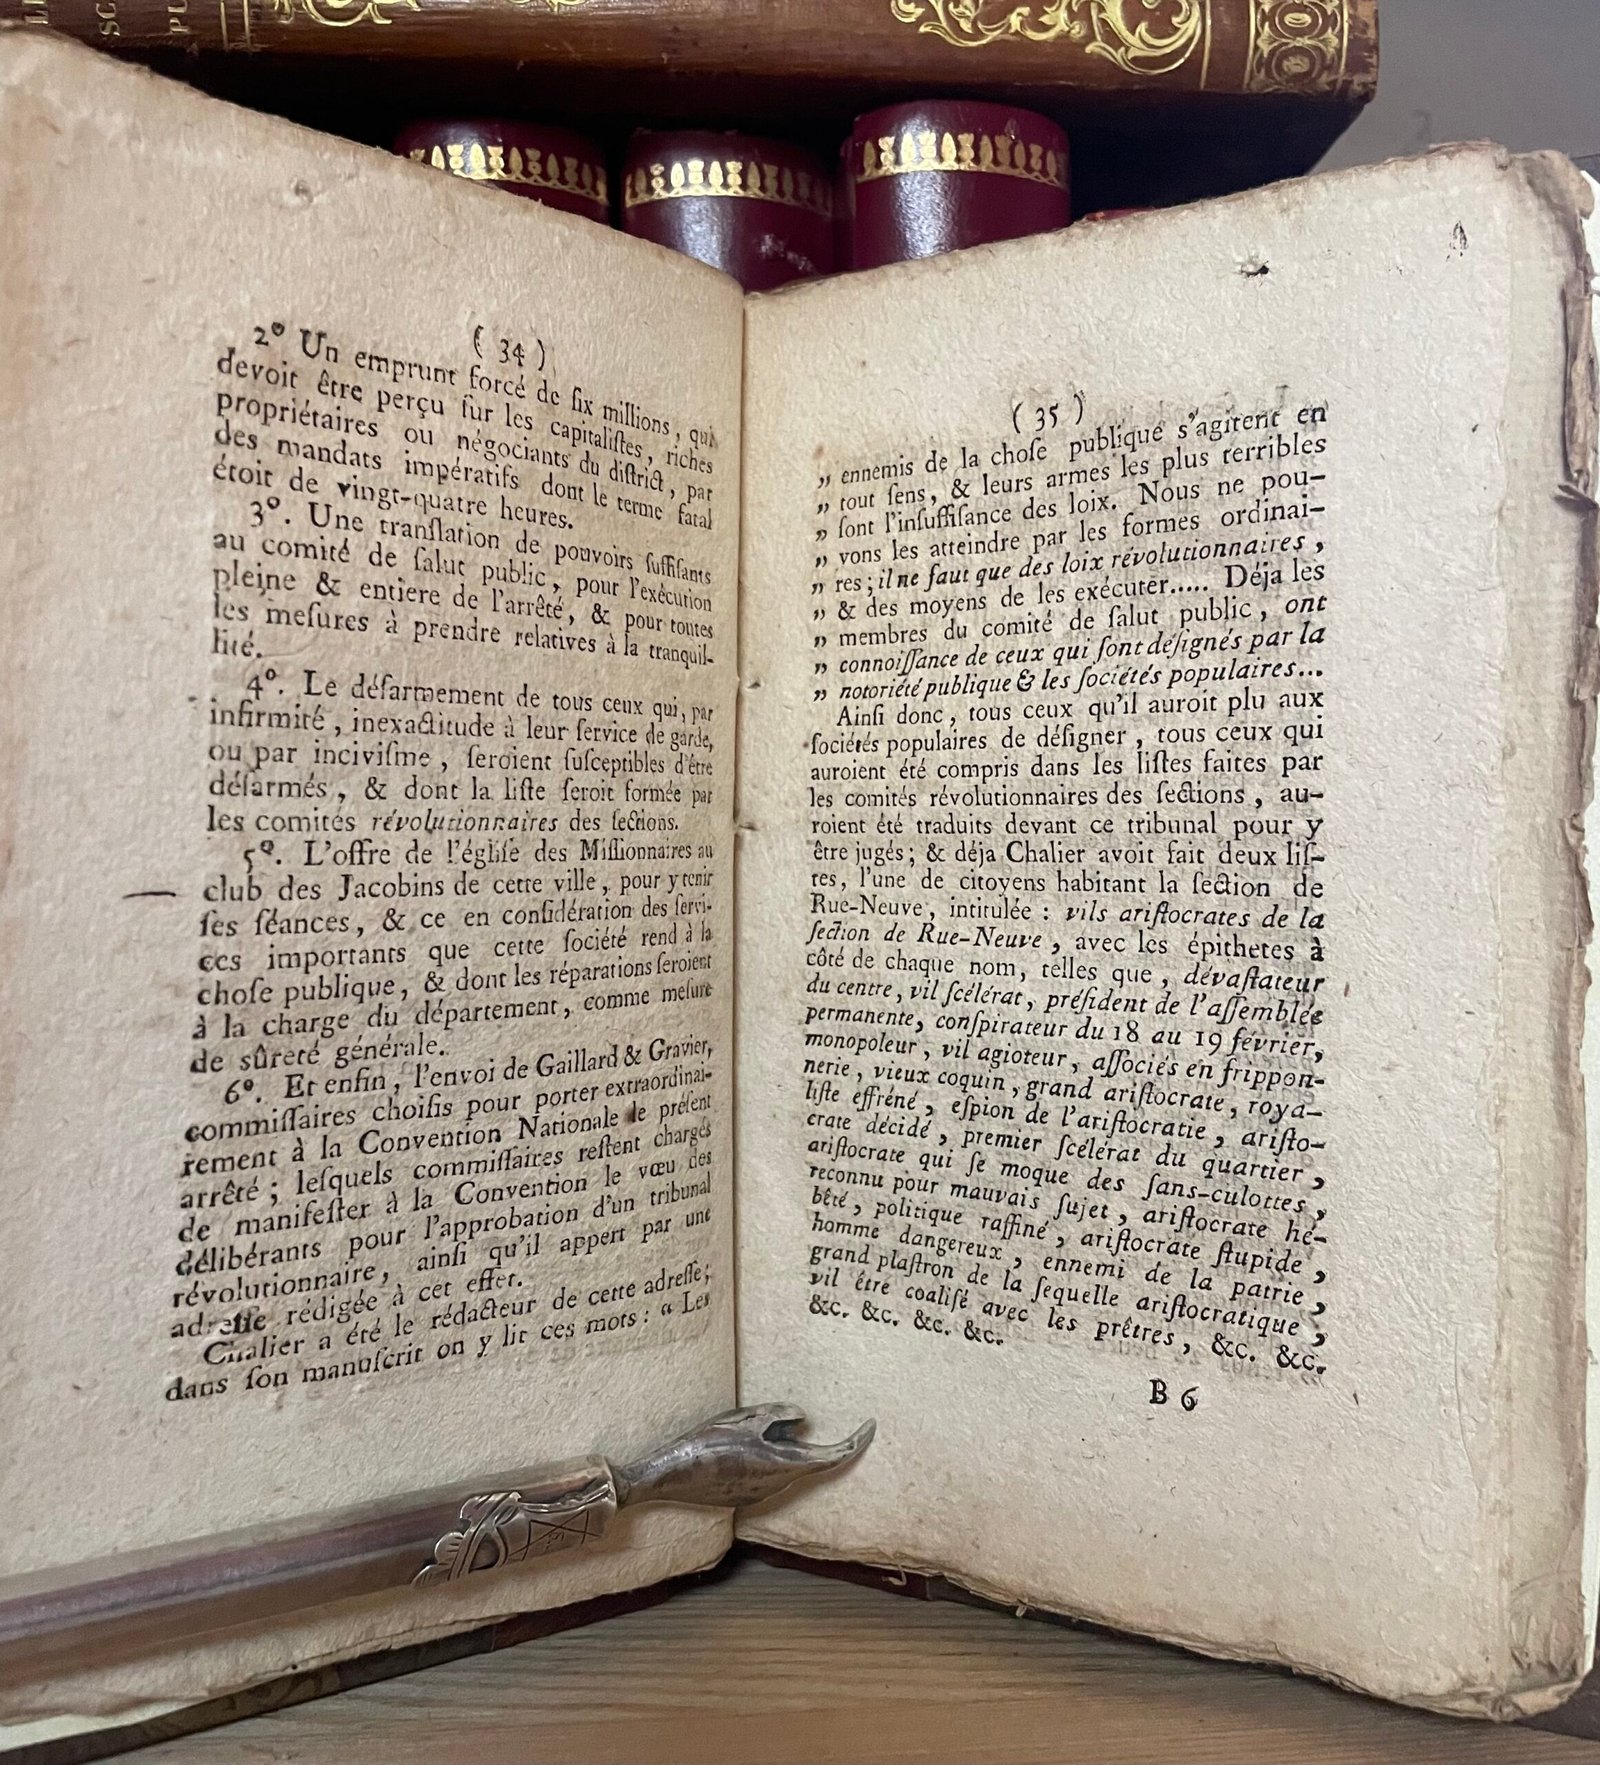 ( 34 )
2° Un emprunt forcé de ſix millions, qui
devoit être perçu ſur les capitaliſtes, riches
propriétaires ou négociants du diſtrict, par
des mandats impératifs dont le terme fatal
étoit de vingt-quatre heures.
3°. Une tranſlation de pouvoirs ſuffiſants
au comité de ſalut public, pour l'exécution
pleine & entiere de l'arrêté, & pour toutes
les meſures à prendre relatives à la tranquil-
lité.
4°. Le déſarmement de tous ceux qui, par
infirmité, inexactitude à leur ſervice de garde,
ou par inciviſme, ſeroient ſuſceptibles d'être
déſarmés, & dont la liſte ſeroit formée par
les comités révolutionnaires des ſections.
5°. L'offre de l'égliſe des Miſſionnaires au
club des Jacobins de cette ville, pour y tenir
ſes ſéances, & ce en conſidération des ſervi-
ces importants que cette ſociété rend à la
choſe publique, & dont les réparations ſeroient
à la charge du département, comme meſure
de sûreté générale.
6°. Et enfin, l'envoi de Gaillard & Gravier,
commiſſaires choiſis pour porter extraordinai-
rement à la Convention Nationale le préſent
arrêté; leſquels commiſſaires reſtent chargés
de manifeſter à la Convention le vœu des
délibérants pour l'approbation d'un tribunal
révolutionnaire, ainſi qu'il appert par une
adreſſe rédigée à cet effet.
Chalier a été le rédacteur de cette adreſſe;
dans ſon manuſcrit on y lit ces mots: “ Les
( 35 )
„ ennemis de la choſe publique s'agitent en
„ tout ſens, & leurs armes les plus terribles
„ ſont l'inſuffiſance des loix. Nous ne pou-
„ vons les atteindre par les formes ordinai-
„ res; il ne faut que des loix révolutionnaires,
„ & des moyens de les exécuter..... Déja les
„ membres du comité de ſalut public, ont
„ connoiſſance de ceux qui ſont déſignés par la
„ notoriété publique & les ſociétés populaires...
Ainſi donc, tous ceux qu'il auroit plu aux
ſociétés populaires de déſigner, tous ceux qui
auroient été compris dans les liſtes faites par
les comités révolutionnaires des ſections, au-
roient été traduits devant ce tribunal pour y
être jugés; & déja Chalier avoit fait deux liſ-
tes, l'une de citoyens habitant la ſection de
Rue-Neuve, intitulée: vils ariſtocrates de la
ſection de Rue-Neuve, avec les épithetes à
côté de chaque nom, telles que, dévaſtateur
du centre, vil ſcélérat, préſident de l'aſſemblée
permanente, conſpirateur du 18 au 19 février,
monopoleur, vil agioteur, aſſociés en frippon-
nerie, vieux coquin, grand ariſtocrate, roya-
liſte effréné, eſpion de l'ariſtocratie, ariſto-
crate décidé, premier ſcélérat du quartier,
ariſtocrate qui ſe moque des ſans-culottes,
reconnu pour mauvais ſujet, ariſtocrate hé-
bêté, politique raffiné, ariſtocrate ſtupide,
homme dangereux, ennemi de la patrie,
grand plaſtron de la ſequelle ariſtocratique,
vil être coaliſé avec les prêtres, &c. &c.
&c. &c. &c. &c.
B 6